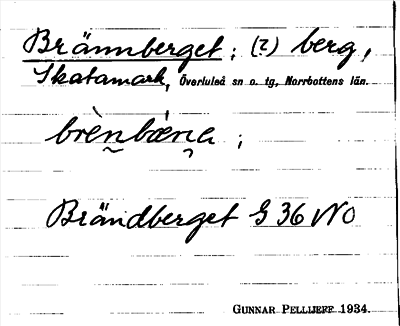 Brännberget; (2) berg,
Skatamark, Överluleå sn o. tg, Norrbottens län.
brèn̰bær̀n̡a;
Brändberget G 36 NO
GUNNAR PELLIJEFF 1934.